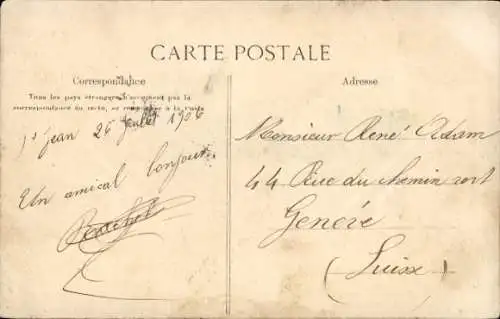 CARTE POSTALE
Correspondance
Tous les pays étrangers n'acceptent pas la
correspondance du recto, se renseigner à la Poste
Adresse
St Jean 26 Juillet 1906
Un amical bonjour
Monsieur René Adam
44 Rue du chemin vert
Genève
(Suisse)